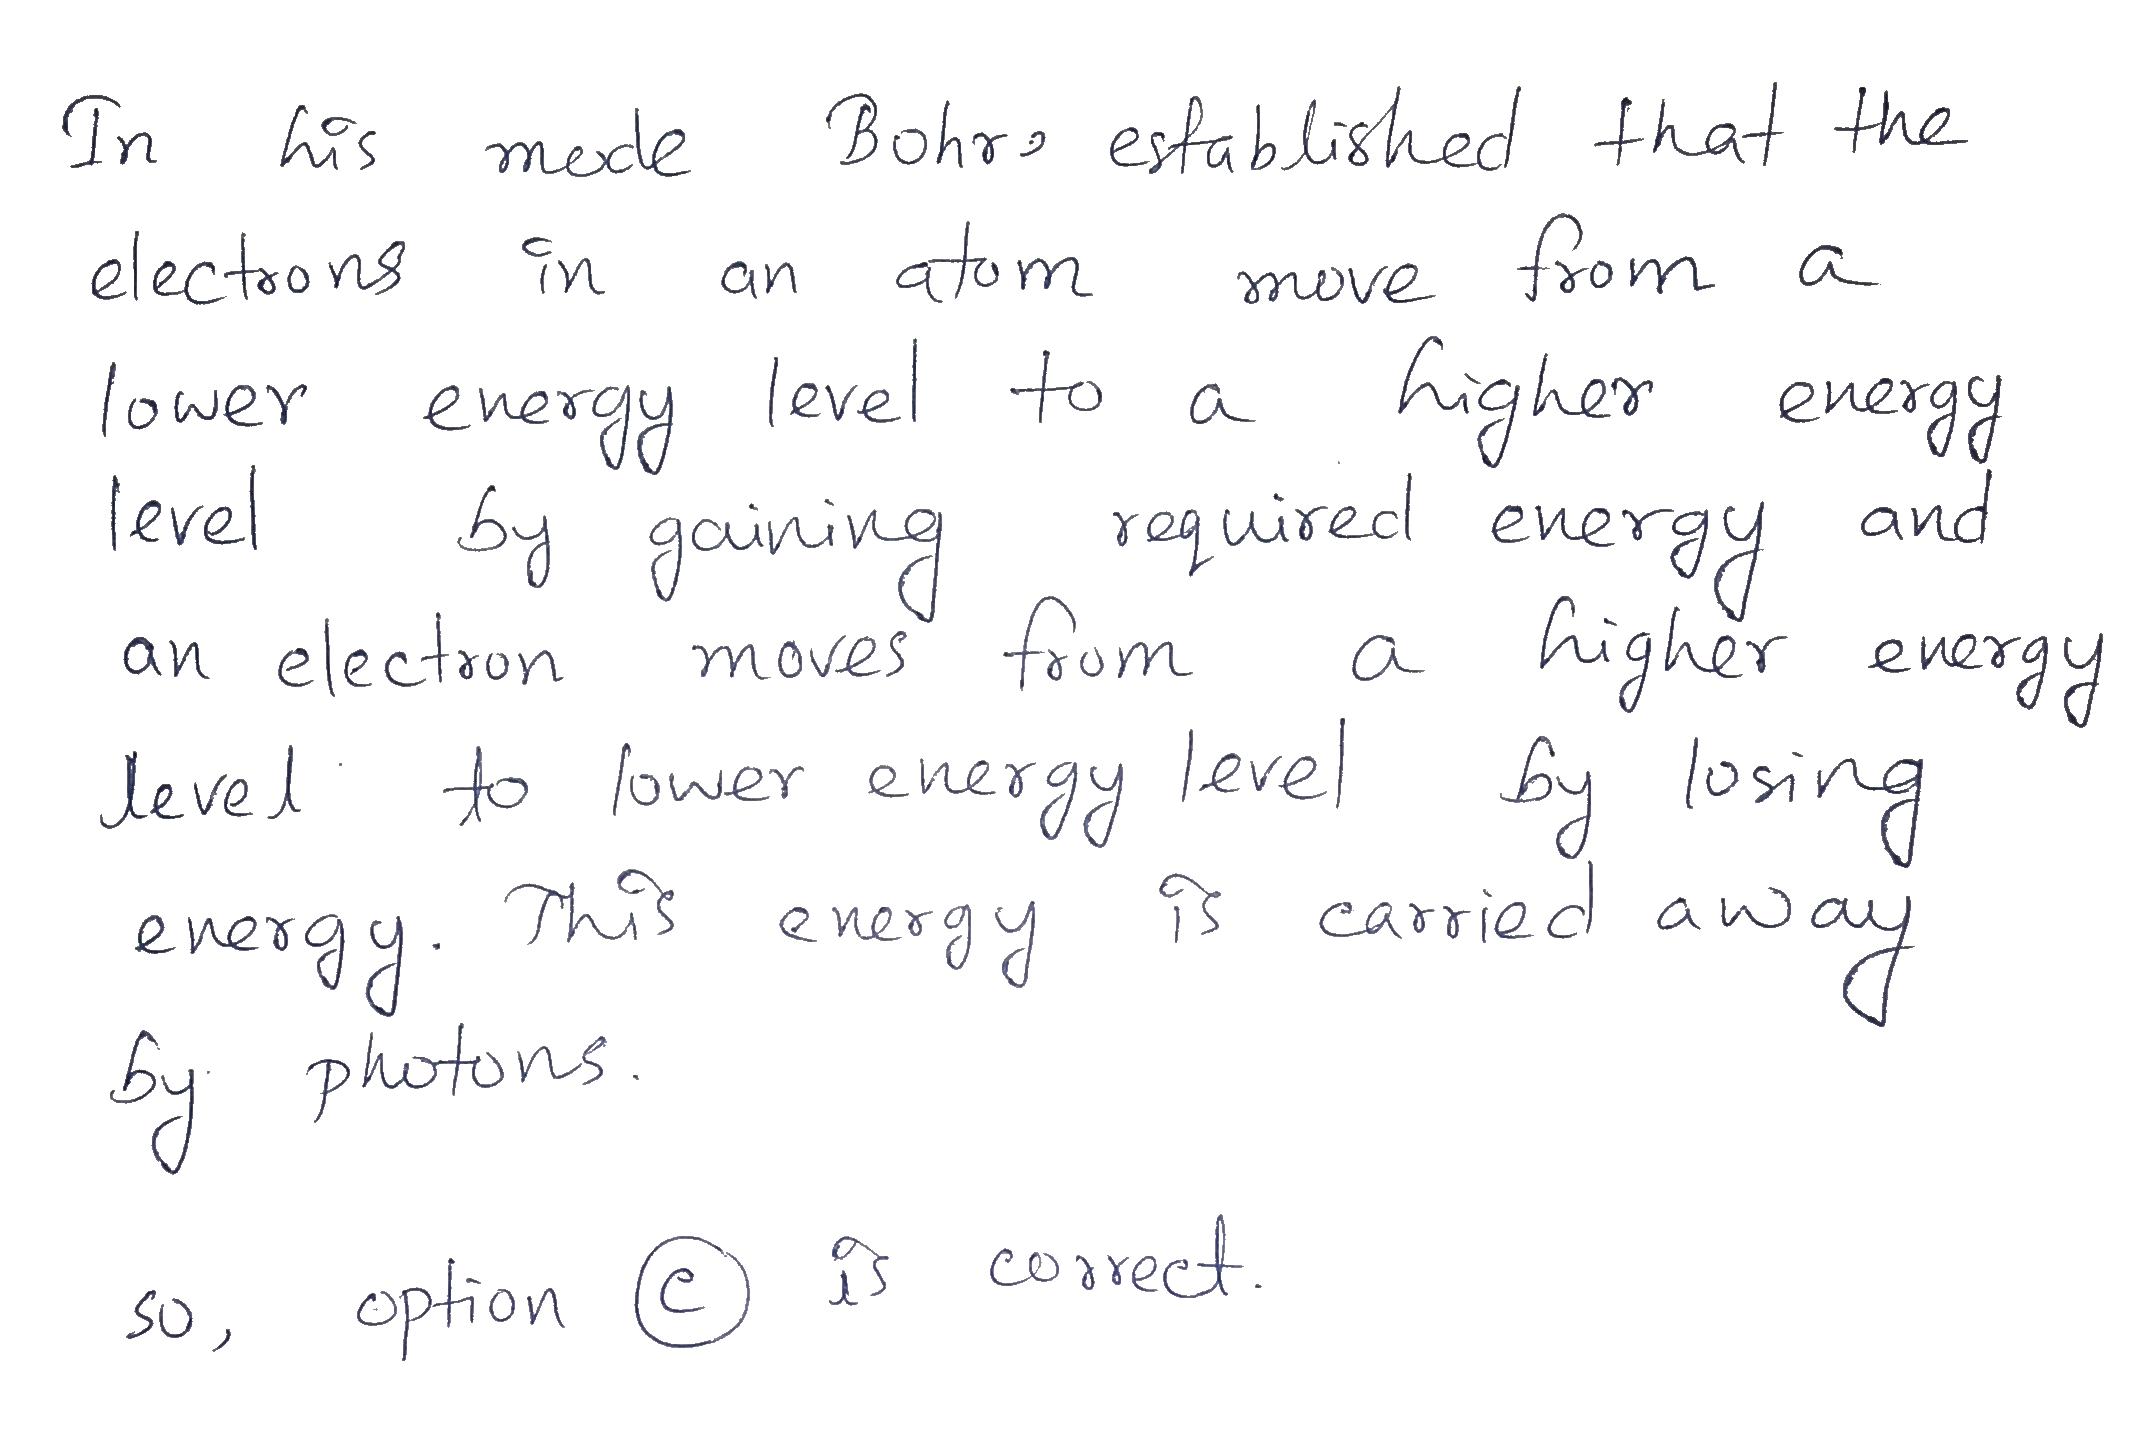 In his mode Bohrs established that the
electrons in an atom move from a
lower energy level to a higher energy
level by gaining required energy and
an electron moves from a higher energy
level to lower energy level by losing
energy. This energy is carried away
by photons.
so, option c is correct.